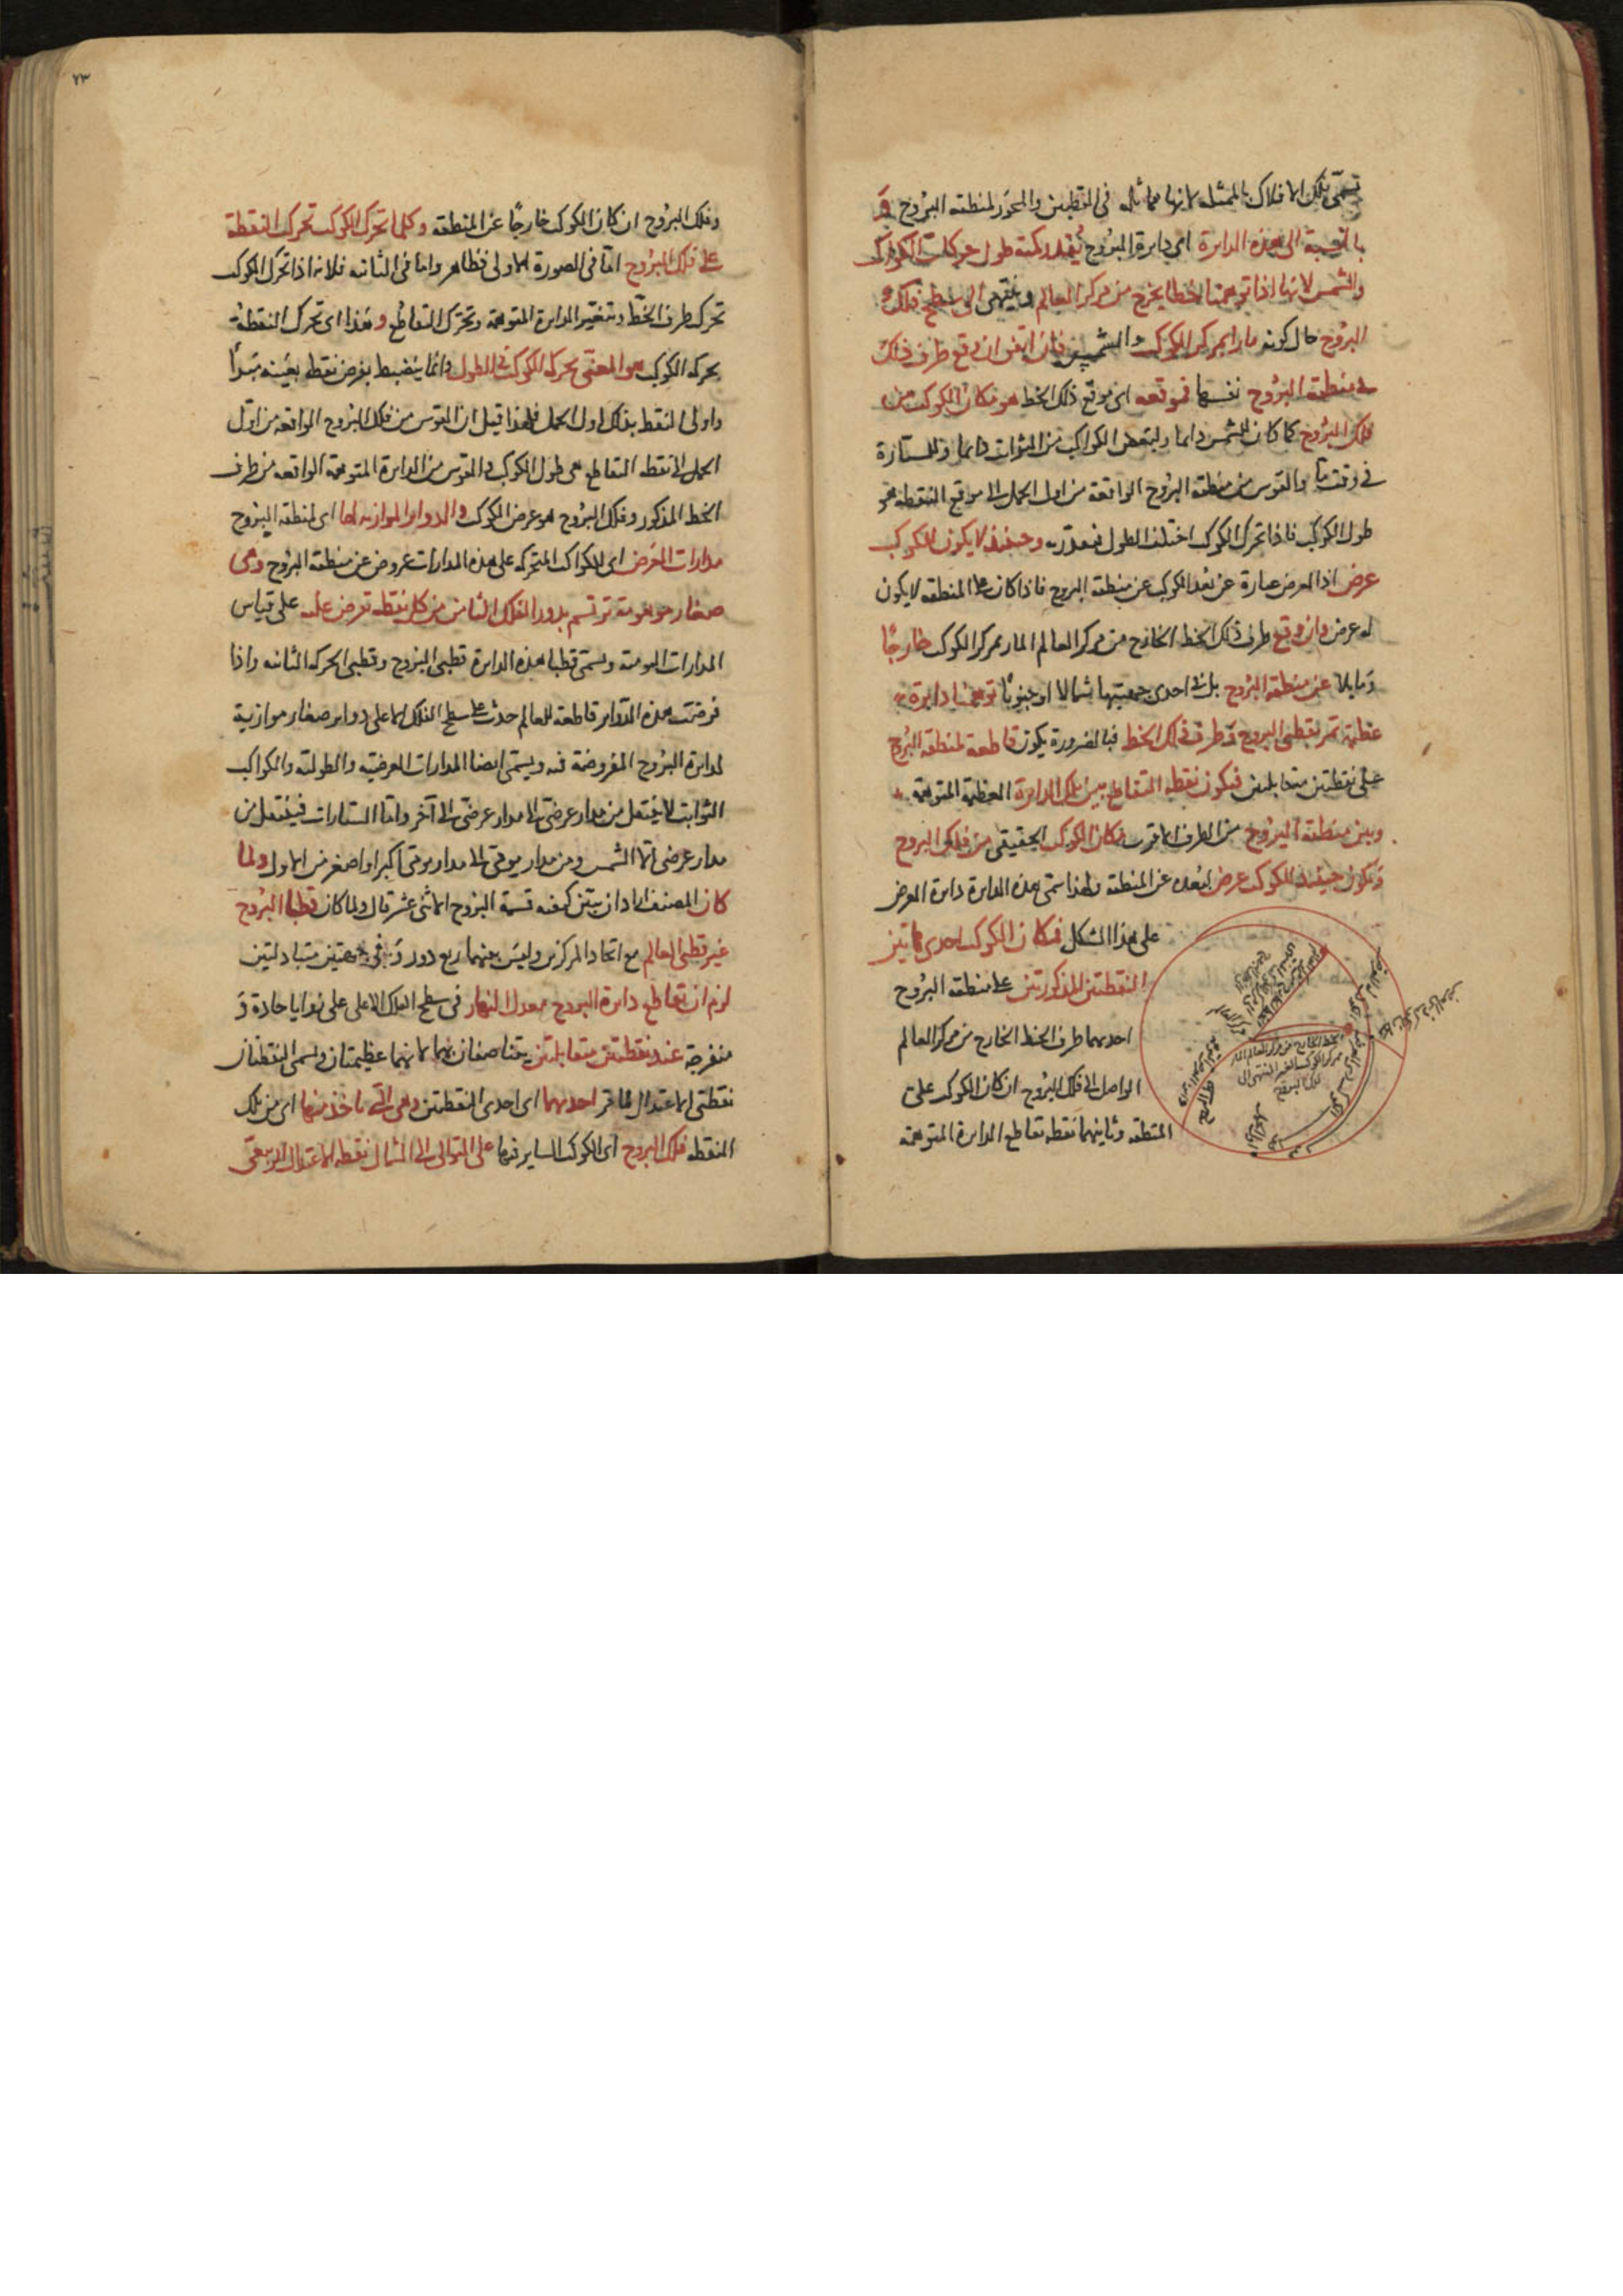 تسمى تلك الافلاك بالممثله لانها مماثله فى القطبين والمحور لمنطقه البروج و
بالنسبة الى هذه الدايرة اى دايرة البروج يقدر كمية طول حركات الكواكب
والشمس لانها اذا توهمنا خطا يخرج من مركز العالم وينتهى الى سطح فلك
البروج حال كونه مارا بمركز الكوكب والشمس فان اتفق ان وقع طرف ذلك
فى منطقة البروج نفسها فموقعه اى موقع ذلك الخط هو مكان الكوكب من
فلك البروج كما كان للشمس دايما ولبعض الكواكب من الثوابت دايما وللسيارة
فى وقت ما والقوس من منطقه البروج الواقعة من اول الحمل الى موقع النقطه هو
طول الكوكب فاذا تحرك الكوكب اختلف الطول فبقدره وحينئذ لا يكون للكوكب
عرض اذ العرض عبارة عن بعد الكوكب عن منطقة البروج فاذا كان على المنطقه لا يكون
له عرض وان وقع طرف ذلك الخط الخارج من مركز العالم المار بمركز الكوكب خارجًا
ومايلا عن منطقه البروج بل فى احدى جهتيها شمالا او جنوبًا توهمنا دايرة
عظيمة تمر بقطبى البروج وطرف ذلك الخط فبالضرورة يكون قاطعة لمنطقه البروج
على نقطتين متقابلتين فيكون نقطه التقاطع بين تلك الدايرة العظيمة المتوهمة
وبين منطقة البروج من الطرف الاقرب مكان الكوكب الحقيقى من فلك البروج
ويكون حينئذ للكوكب عرض لبعده عن المنطقه ولهذا سمى هذه الدايرة دايرة العرض
على هذا الشكل فمكان الكوكب احدى هاتين
النقطتين المذكورتين على منطقه البروج
احديهما طرف الخط الخارج من مركز العالم
الواصل الى فلك البروج ان كان الكوكب على
المنطقه وثانيهما نقطه تقاطع الدايرة المتوهمه
٧٣
وفلك البروج ان كان الكوكب خارجًا عن المنطقه وكلما تحرك الكوكب تحرك النقطة
على فلك البروج اما فى الصورة الاولى فظاهر واما فى الثانيه فلانه اذا تحرك الكوكب
تحرك طرف الخط وتتغير الدايرة المتوهمة وتحرك التقاطع وهذا اى تحرك النقطة
بحركه الكوكب هو المعنى بحركة الكوكب فى الطول وانما ينضبط بفرض نقطه بعينه مبدأ
واولى النقط بذلك اول الحمل فلهذا قيل ان القوس من فلك البروج الواقعه من اول
الحمل الى نقطه التقاطع هى طول الكوكب والقوس من الدايرة المتوهمة الواقعه من طرف
الخط المذكور وفلك البروج هو عرض الكوكب والدواير الموازيه لها اى لمنطقة البروج
مدارات العرض اى للكواكب المتحركه على هذه المدارات عروض عن منطقة البروج وهى
صغار موهومة ترتسم بدور الفلك الثامن من كل نقطه تفرض عليه على قياس
المدارات اليوميه ويسمى قطبا هذه الدايرة قطبى البروج وقطبى الحركه الثانيه واذا
فرضت هذه الدواير قاطعة للعالم حدث على سطح الفلك الاعلى دواير صغار موازية
لدايرة البروج المفروضة فيه ويسمى ايضا المدارات العرضيه والطوليه والكواكب
الثوابت لا ينتقل من مدار عرضى الى مدار عرضى الى آخر واما السيارات فينتقل من
مدار عرضى الا الشمس ومن مدار يومى الى مدار يومى اكبر او اصغر من الاول ولما
كان المصنف اراد ان يبين كيفيه قسمة البروج الاثنى عشر قال ولما كان قطبا البروج
غير قطبى العالم مع اتحاد المركزين وليس بينهما ربع دور و فى جهتين متبادلتين
لزم ان تقاطع دايرة البروج معدل النهار فى سطح الفلك الاعلى على زوايا حادة و
منفرجة عند نقطتين متقابلتين يتناصفان بهما لانهما عظيمتان ويسمى النقطتان
نقطتى الاعتدال فاقر احديهما اى احدى النقطتين وهى التى ياخذ منها اى من تلك
النقطه فلك البروج اى الكوكب الساير فيها على التوالى الى الشمال نقطه الاعتدال الربيعى